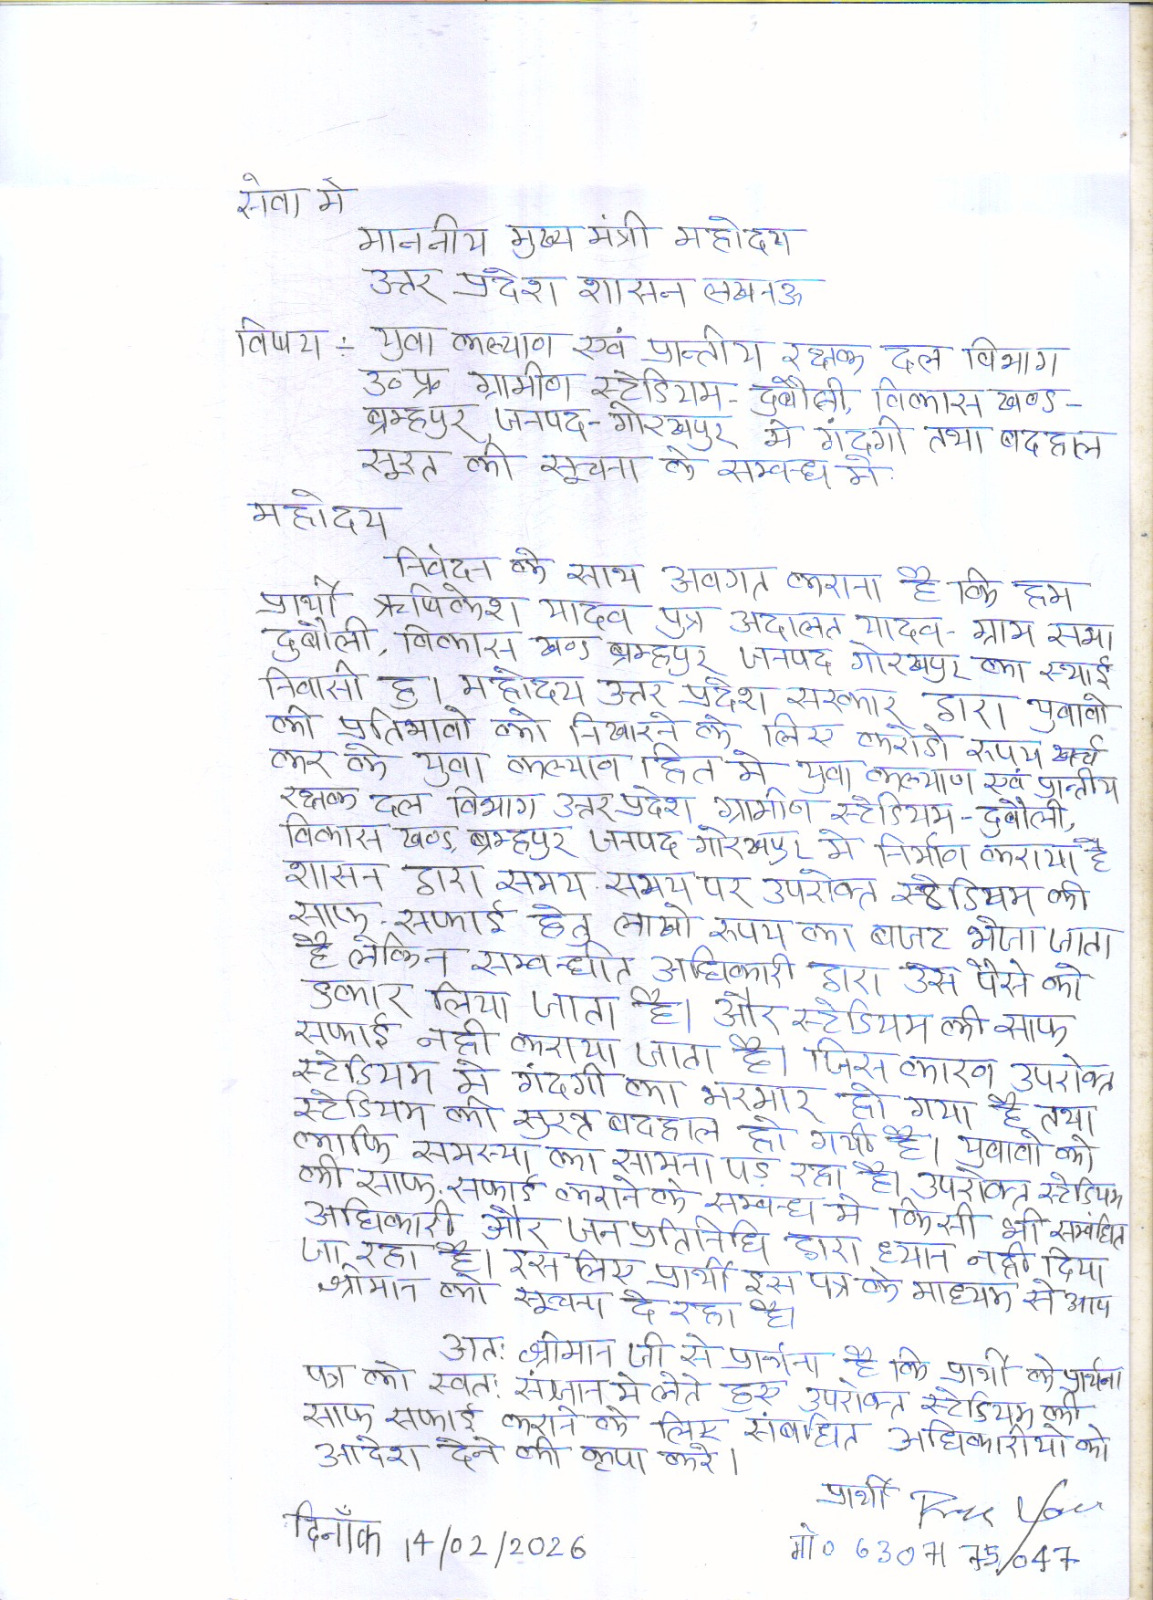 सेवा मे
माननीय मुख्य मंत्री महोदय
उत्तर प्रदेश शासन लखनऊ
विषय :- युवा कल्याण एवं प्रान्तीय रक्षक दल विभाग
उ० प्र० ग्रामीण स्टेडियम - दुबौली, विकास खण्ड -
ब्रम्हपुर, जनपद - गोरखपुर मे गंदगी तथा बदहाल
सूरत की सूचना के सम्बन्ध मे.
महोदय
निवेदन के साथ अवगत कराना है कि हम
प्रार्थी ऋषिकेश यादव पुत्र अदालत यादव - ग्राम सभा
दुबौली, विकास खण्ड ब्रम्हपुर जनपद गोरखपुर का स्थाई
निवासी हु। महोदय उत्तर प्रदेश सरकार द्वारा युवावो
की प्रतिभावो को निखारने के लिए करोडो रूपय खर्च
कर के युवा कल्याण हित मे युवा कल्याण एवं प्रान्तीय
रक्षक दल विभाग उत्तर प्रदेश ग्रामीण स्टेडियम - दुबौली,
विकास खण्ड ब्रम्हपुर जनपद गोरखपुर मे निर्माण कराया है
शासन द्वारा समय-समय पर उपरोक्त स्टेडियम की
साफ-सफाई हेतु लाखो रूपय का बजट भेजा जाता
है लेकिन सम्बन्धित अधिकारी द्वारा उस पैसे को
डकार लिया जाता है। और स्टेडियम की साफ
सफाई नही कराया जाता है। जिस कारण उपरोक्त
स्टेडियम मे गंदगी का भरमार हो गया है तथा
स्टेडियम की सुरत बदहाल हो गयी है। युवावो को
काफि समस्या का सामना पड़ रहा है। उपरोक्त स्टेडियम
की साफ-सफाई कराने के सम्बन्ध मे किसी भी सम्बंधित
अधिकारी और जनप्रतिनिधि द्वारा ध्यान नही दिया
जा रहा है। इस लिए प्रार्थी इस पत्र के माध्यम से आप
श्रीमान को सूचना दे रहा है।
अतः श्रीमान जी से प्रार्थना है कि प्रार्थी के प्रार्थना
पत्र को स्वतः संज्ञान मे लेते हुए उपरोक्त स्टेडियम की
साफ सफाई कराने के लिए संबंधित अधिकारीयो को
आदेश देने की कृपा करे।
प्रार्थी
दिनाँक 14/02/2026
मो०